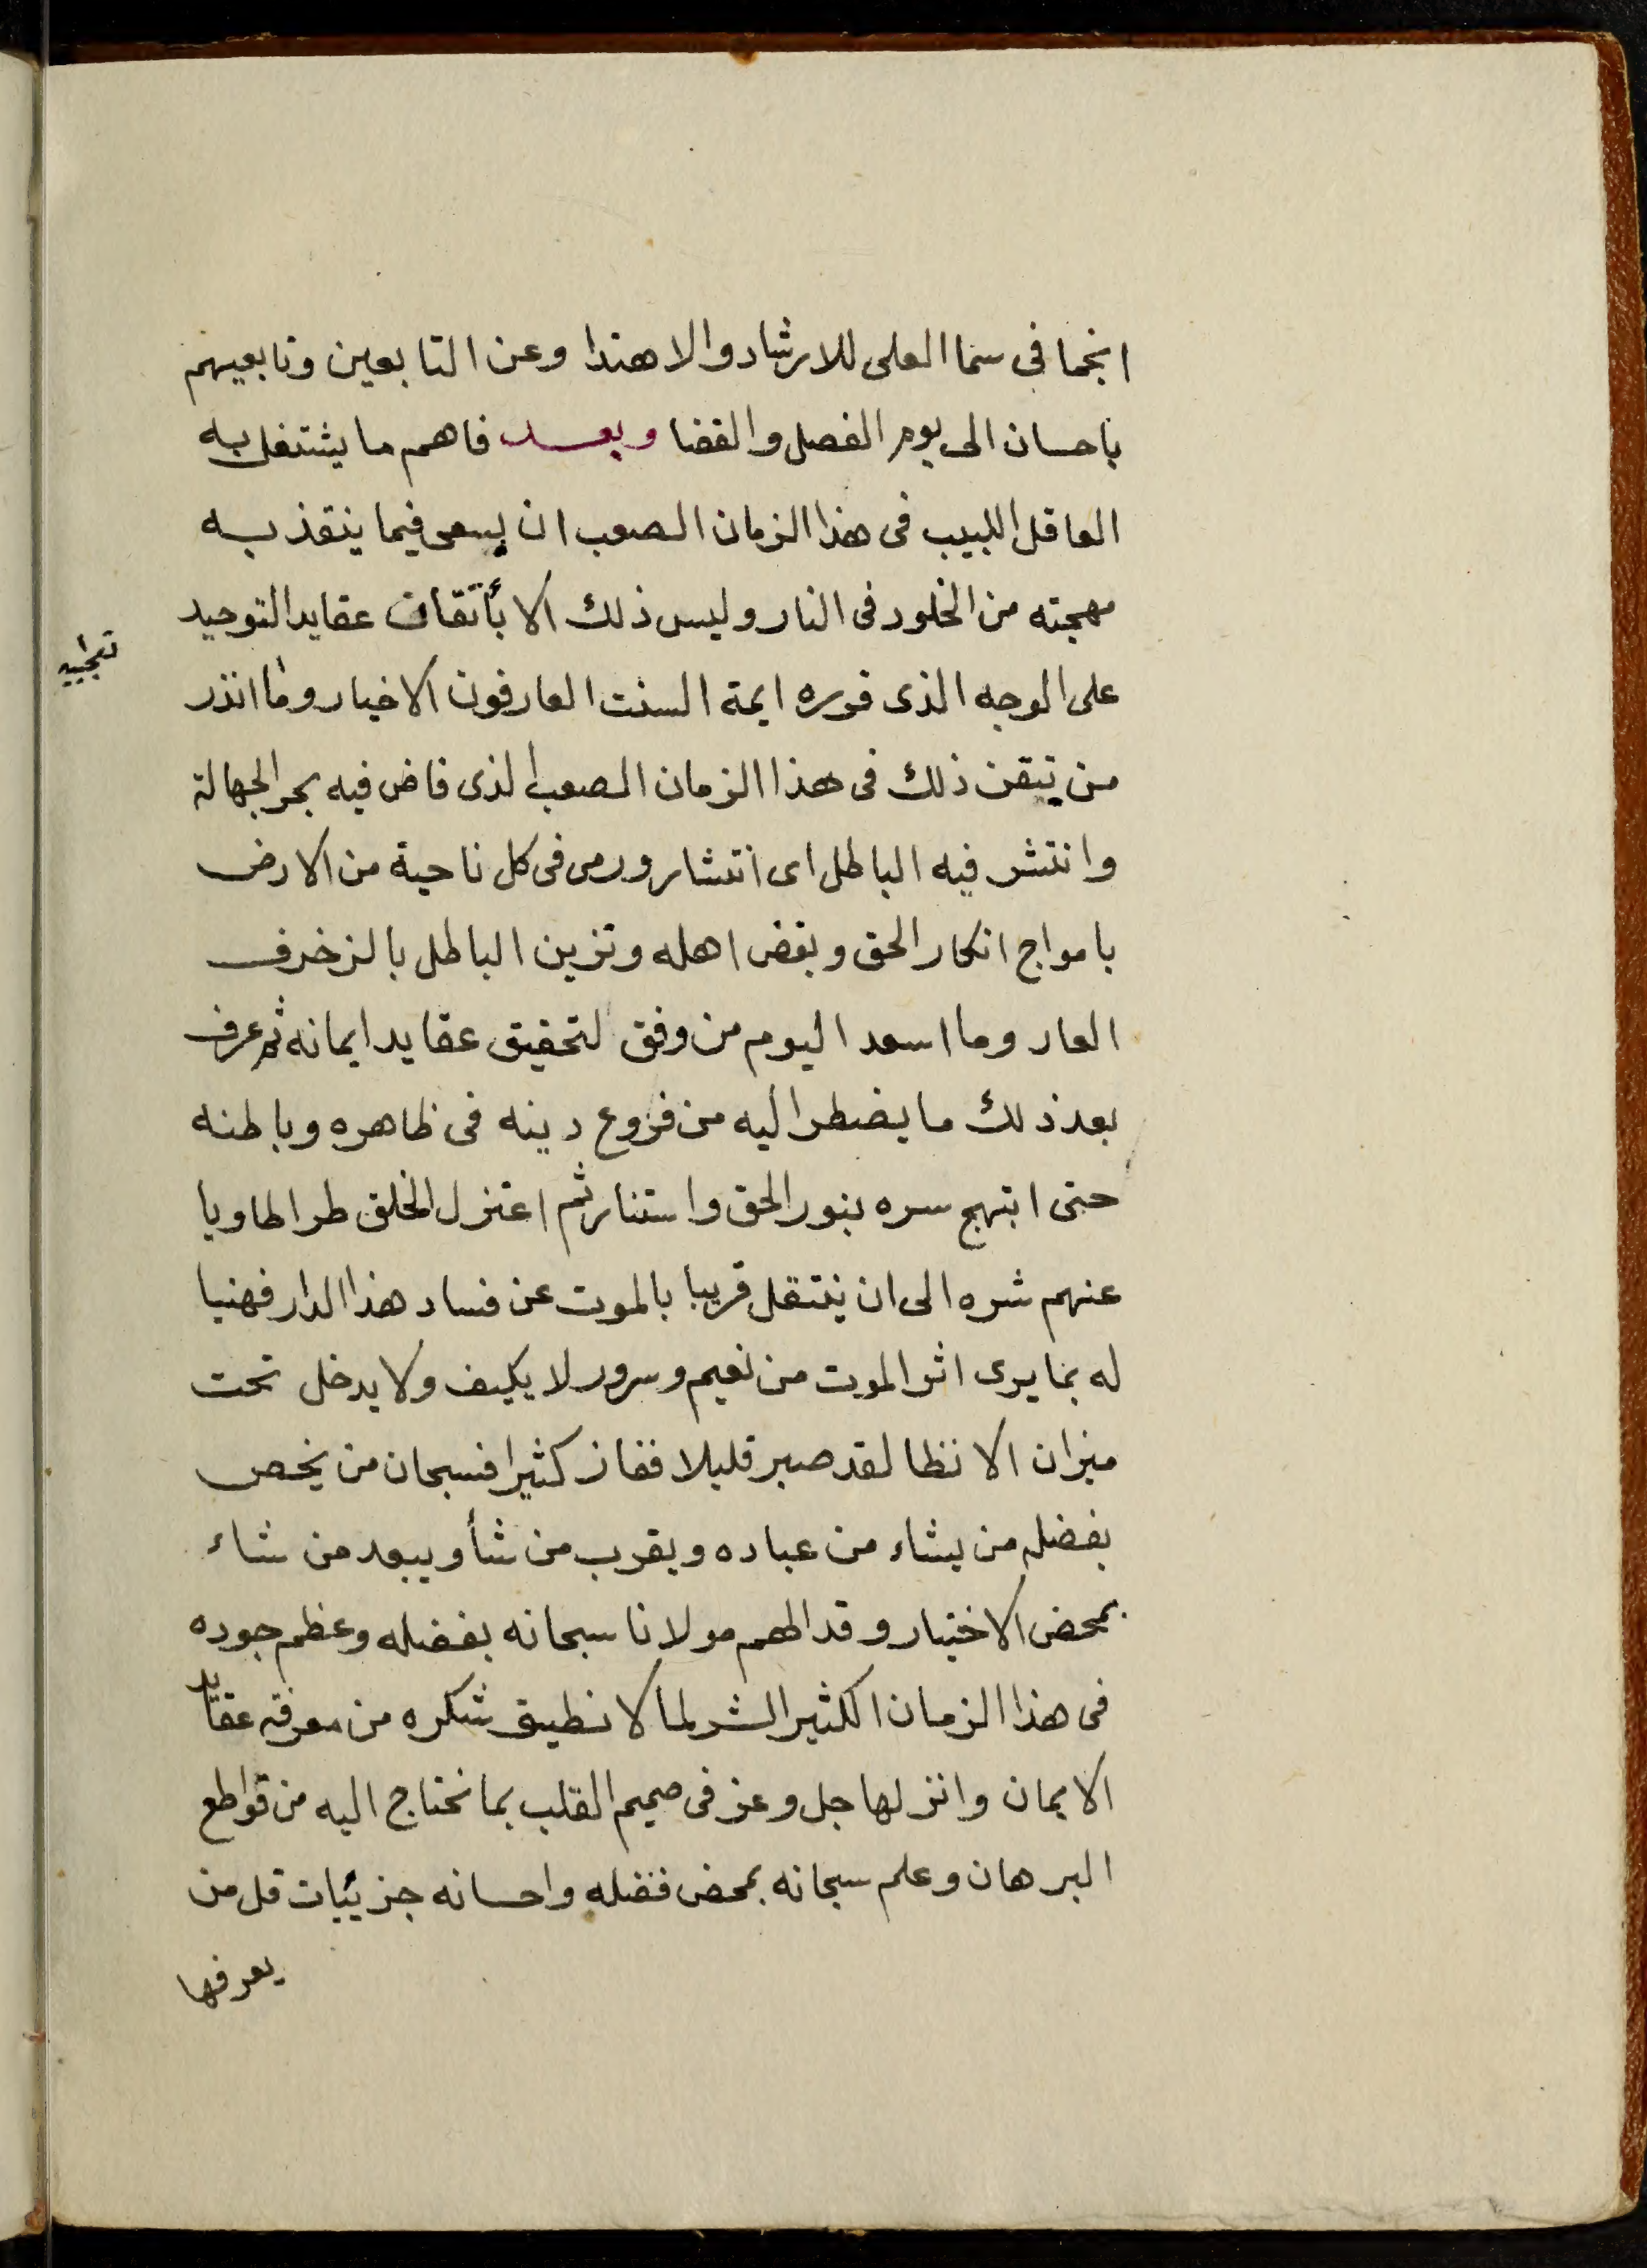 انجما فى سما العلى للارشاد والاهتدا وعن التابعين وتابعيهم
باحسان الى يوم الفصل والقضا وبعد فاهم ما يشتغل به
العاقل اللبيب فى هذا الزمان الصعب ان يسعى فيما ينقذ به
مهجته من الخلود فى النار وليس ذلك الا بأتقان عقايد التوحيد
على الوجه الذى قرره ايمة السنت العارفون الاخيار وما انذر
من تيقن ذلك فى هذا الزمان الصعب الذى فاض فيه بحر الجهالة
وانتشر فيه الباطل اى انتشار ورمى فى كل ناحية من الارض
بامواج انكار الحق وبغض اهله وتزين الباطل بالزخرف
العار وما اسعد اليوم من وفق لتحقيق عقايد ايمانه ثم عرف
بعد ذلك ما يضطر اليه من فروع دينه فى ظاهره وباطنه
حتى ابتهج سره بنور الحق واستنار ثم اعتزل الخلق طرا طاويا
عنهم شره الى ان ينتقل قريبا بالموت عن فساد هذا الدار فهنيا
له بما يرى اثر الموت من نعيم وسرور لا يكيف ولا يدخل تحت
ميزان الانظا لقد صبر قليلا ففاز كثيرا فسبحان من يخص
بفضله من يشاء من عباده ويقرب من شأ ويبعد من شاء
بمحض الاختيار وقد الهم مولانا سبحانه بفضله وعظم جوده
فى هذا الزمان الكثير الشر لما لا نطيق شكره من معرفة عقايد
الايمان وانزلها جل وعز فى صميم القلب بما نحتاج اليه من قواطع
البرهان وعلم سبحانه بمحض فضله واحسانه جزئيات قل من
يعرفها